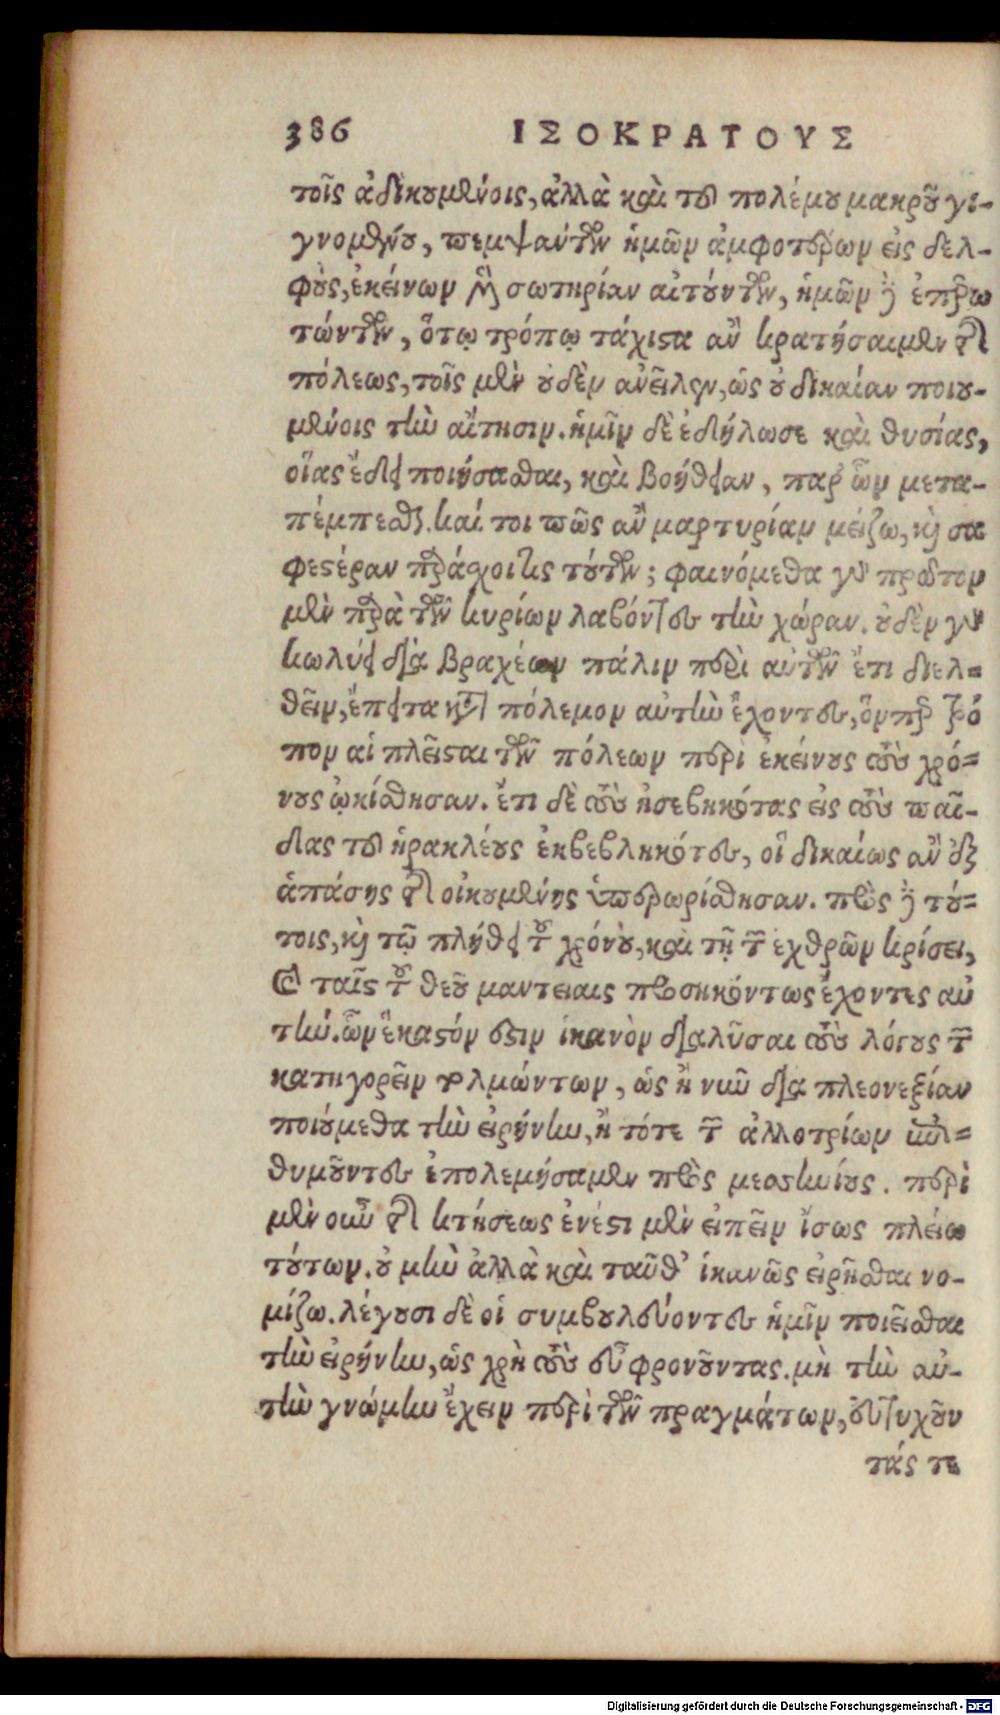 386 ΙΣΟΚΡΑΤΟΥΣ
τοῖς ἀδικουμένοις, ἀλλὰ καὶ τοῦ πολέμου μακροῦ γι-
γνομένου, πεμψάντων ἡμῶν ἀμφοτέρων εἰς δελ-
φοὺς, ἐκείνων μὲν σωτηρίαν αἰτούντων, ἡμῶν δὲ ἐπερω
τώντων, ὅτῳ τρόπῳ τάχιστα ἂν κρατήσαιμεν τῆς
πόλεως, τοῖς μὲν οὐδὲν ἀνεῖλεν, ὡς οὐ δικαίαν ποιου-
μένοις τὴν αἴτησιν. ἡμῖν δὲ ἐδήλωσε καὶ θυσίας,
οἵας ἔδει ποιήσασθαι, καὶ βοήθειαν, παρ' ὧν μετα-
πέμπεσθαι. καί τοι πῶς ἂν μαρτυρίαν μείζω, καὶ σα
φεστέραν παράσχοι τις τούτων; φαινόμεθα γὰρ πρῶτον
μὲν παρὰ τῶν κυρίων λαβόντες τὴν χώραν. οὐδὲν γὰρ
κωλύει διὰ βραχέων πάλιν περὶ αὐτῶν ἔτι διελ-
θεῖν, ἔπειτα κατὰ πόλεμον αὐτὴν ἔχοντες, ὅνπερ τρό
πον αἱ πλεῖσται τῶν πόλεων περὶ ἐκείνους τοὺς χρό-
νους ᾠκίσθησαν. ἔτι δὲ τοὺς ἠσεβηκότας εἰς τοὺς παῖ-
δας τοῦ ἡρακλέους ἐκβεβληκότες, οἳ δικαίως ἂν ἐξ
ἁπάσης τῆς οἰκουμένης ὑπερωρίσθησαν. πρὸς δὲ τού-
τοις, καὶ τῷ πλήθει τοῦ χρόνου, καὶ τῇ τῶν ἐχθρῶν κρίσει,
καὶ ταῖς τοῦ θεοῦ μαντείαις προσηκόντως ἔχοντες αὐ
τήν. ὧν ἕκαστόν ἐστιν ἱκανὸν διαλῦσαι τοὺς λόγους τῶν
κατηγορεῖν τολμώντων, ὡς ἢ νῦν διὰ πλεονεξίαν
ποιούμεθα τὴν εἰρήνην, ἢ τότε τῶν ἀλλοτρίων ἐπι-
θυμοῦντες ἐπολεμήσαμεν πρὸς μεσσηνίους. περὶ
μὲν οὖν τῆς κτήσεως ἔνεστι μὲν εἰπεῖν ἴσως πλείω
τούτων. οὐ μὴν ἀλλὰ καὶ ταῦθ' ἱκανῶς εἰρῆσθαι νο-
μίζω. λέγουσι δὲ οἱ συμβουλεύοντες ἡμῖν ποιεῖσθαι
τὴν εἰρήνην, ὡς χρὴ τοὺς εὖ φρονοῦντας. μὴ τὴν αὐ-
τὴν γνώμην ἔχειν περὶ τῶν πραγμάτων, εὐτυχοῦν
τάς τε
Digitalisierung gefördert durch die Deutsche Forschungsgemeinschaft - DFG